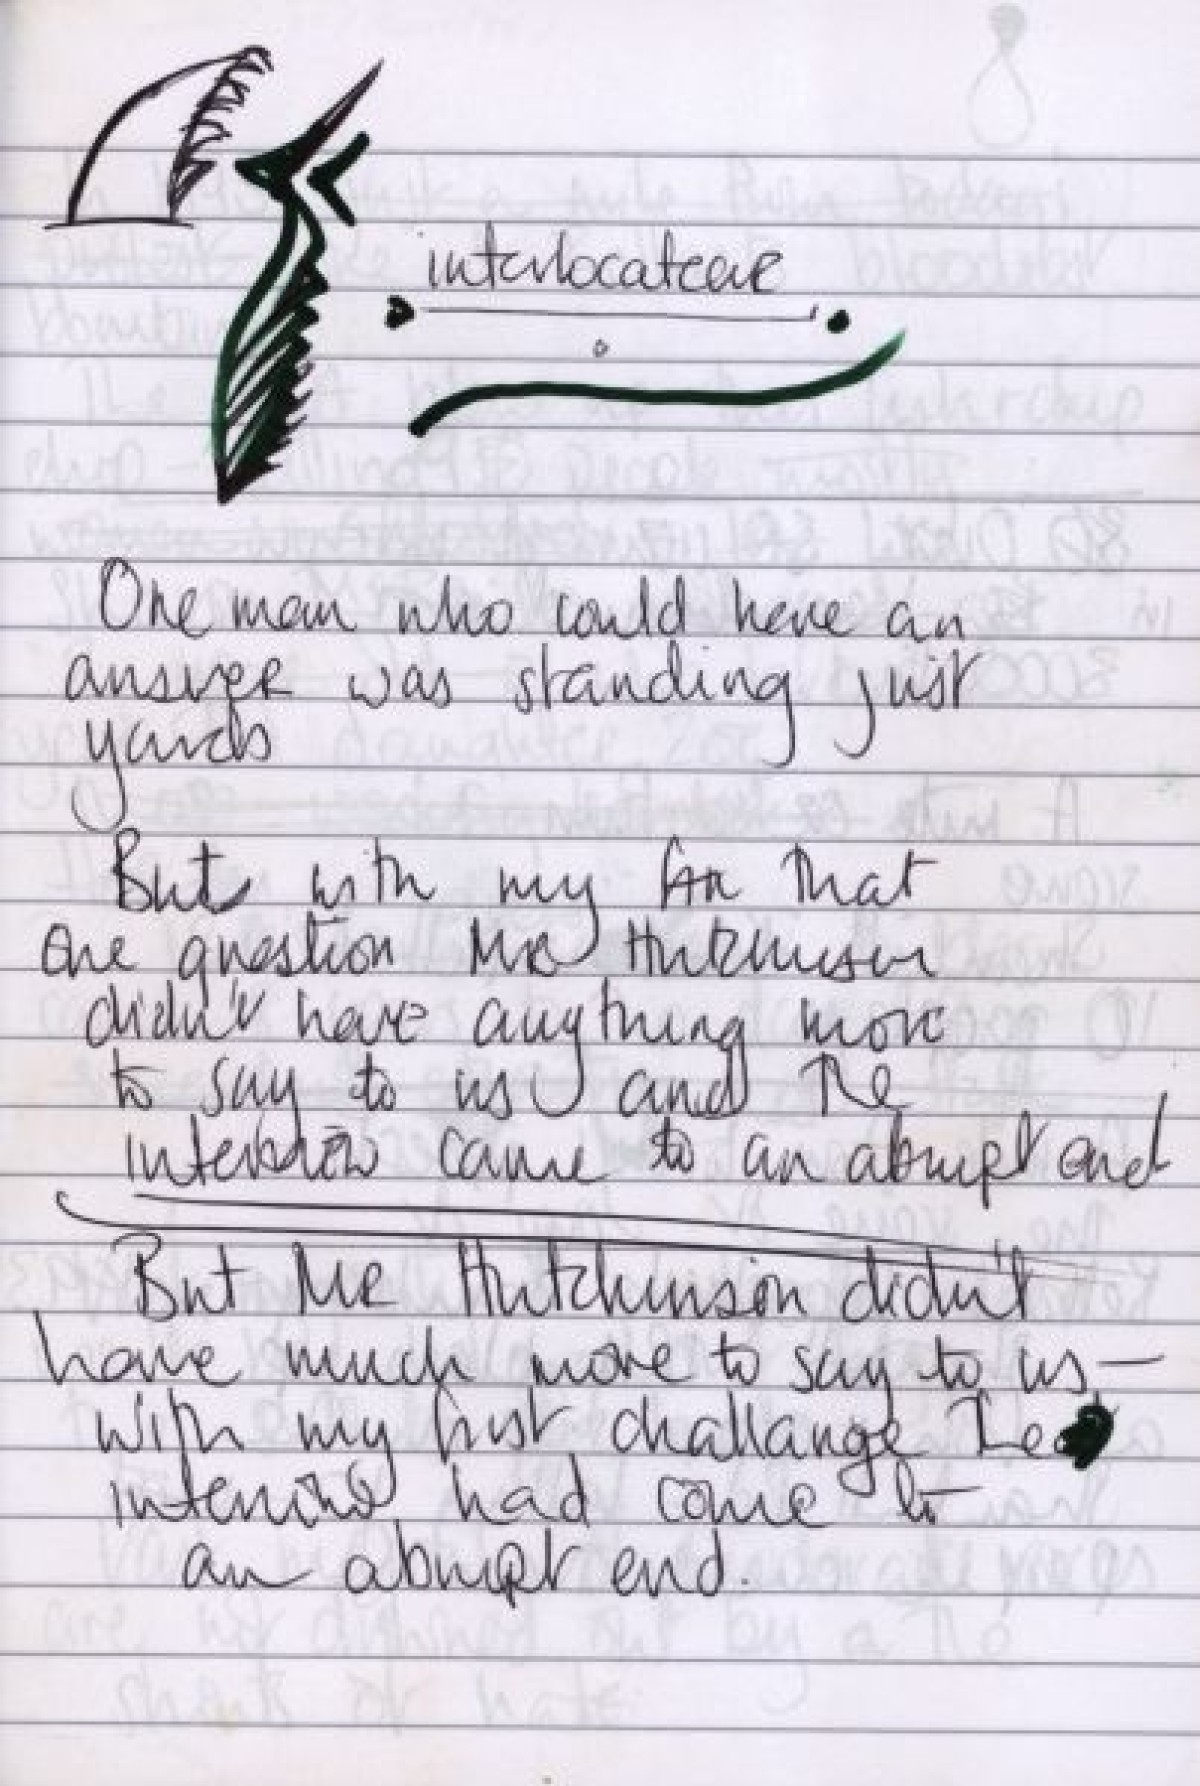 interlocateur
One man who could have an
answer was standing just
yards
But with my that
one question Mr Hutchinson
didn't have anything more
to say to us and the
interview came to an abrupt end
But Mr Hutchinson didn't
have much more to say to us—
with my first challange the
interview had come to
an abrupt end.